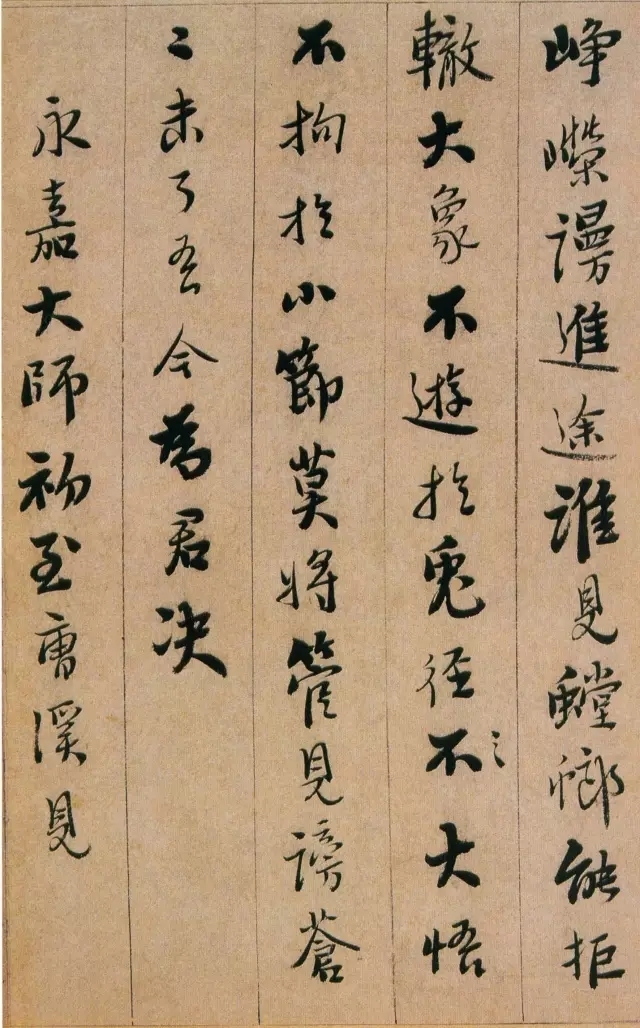 崢嶸謾進途誰見螳螂能拒
轍大象不遊於兔徑不大悟
不拘於小節莫將管見謗蒼
〻未了吾今為君決
永嘉大師初至曹溪見